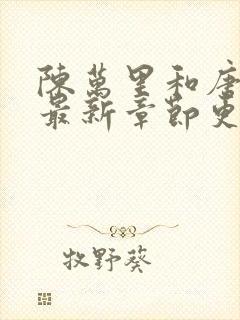 陳萬里和唐
最新章節更
牧野葵